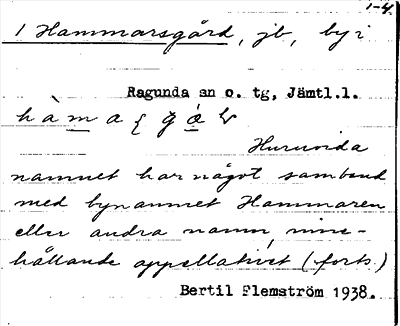 1-4.
1 Hammarsgård, jb, by i
Ragunda sn o. tg, Jämtl.l.
Huruvida
namnet har något samband
med bynamnet Hammaren
eller andra namn, inne-
hållande appellativet (forts.)
Bertil Flemström 1938.